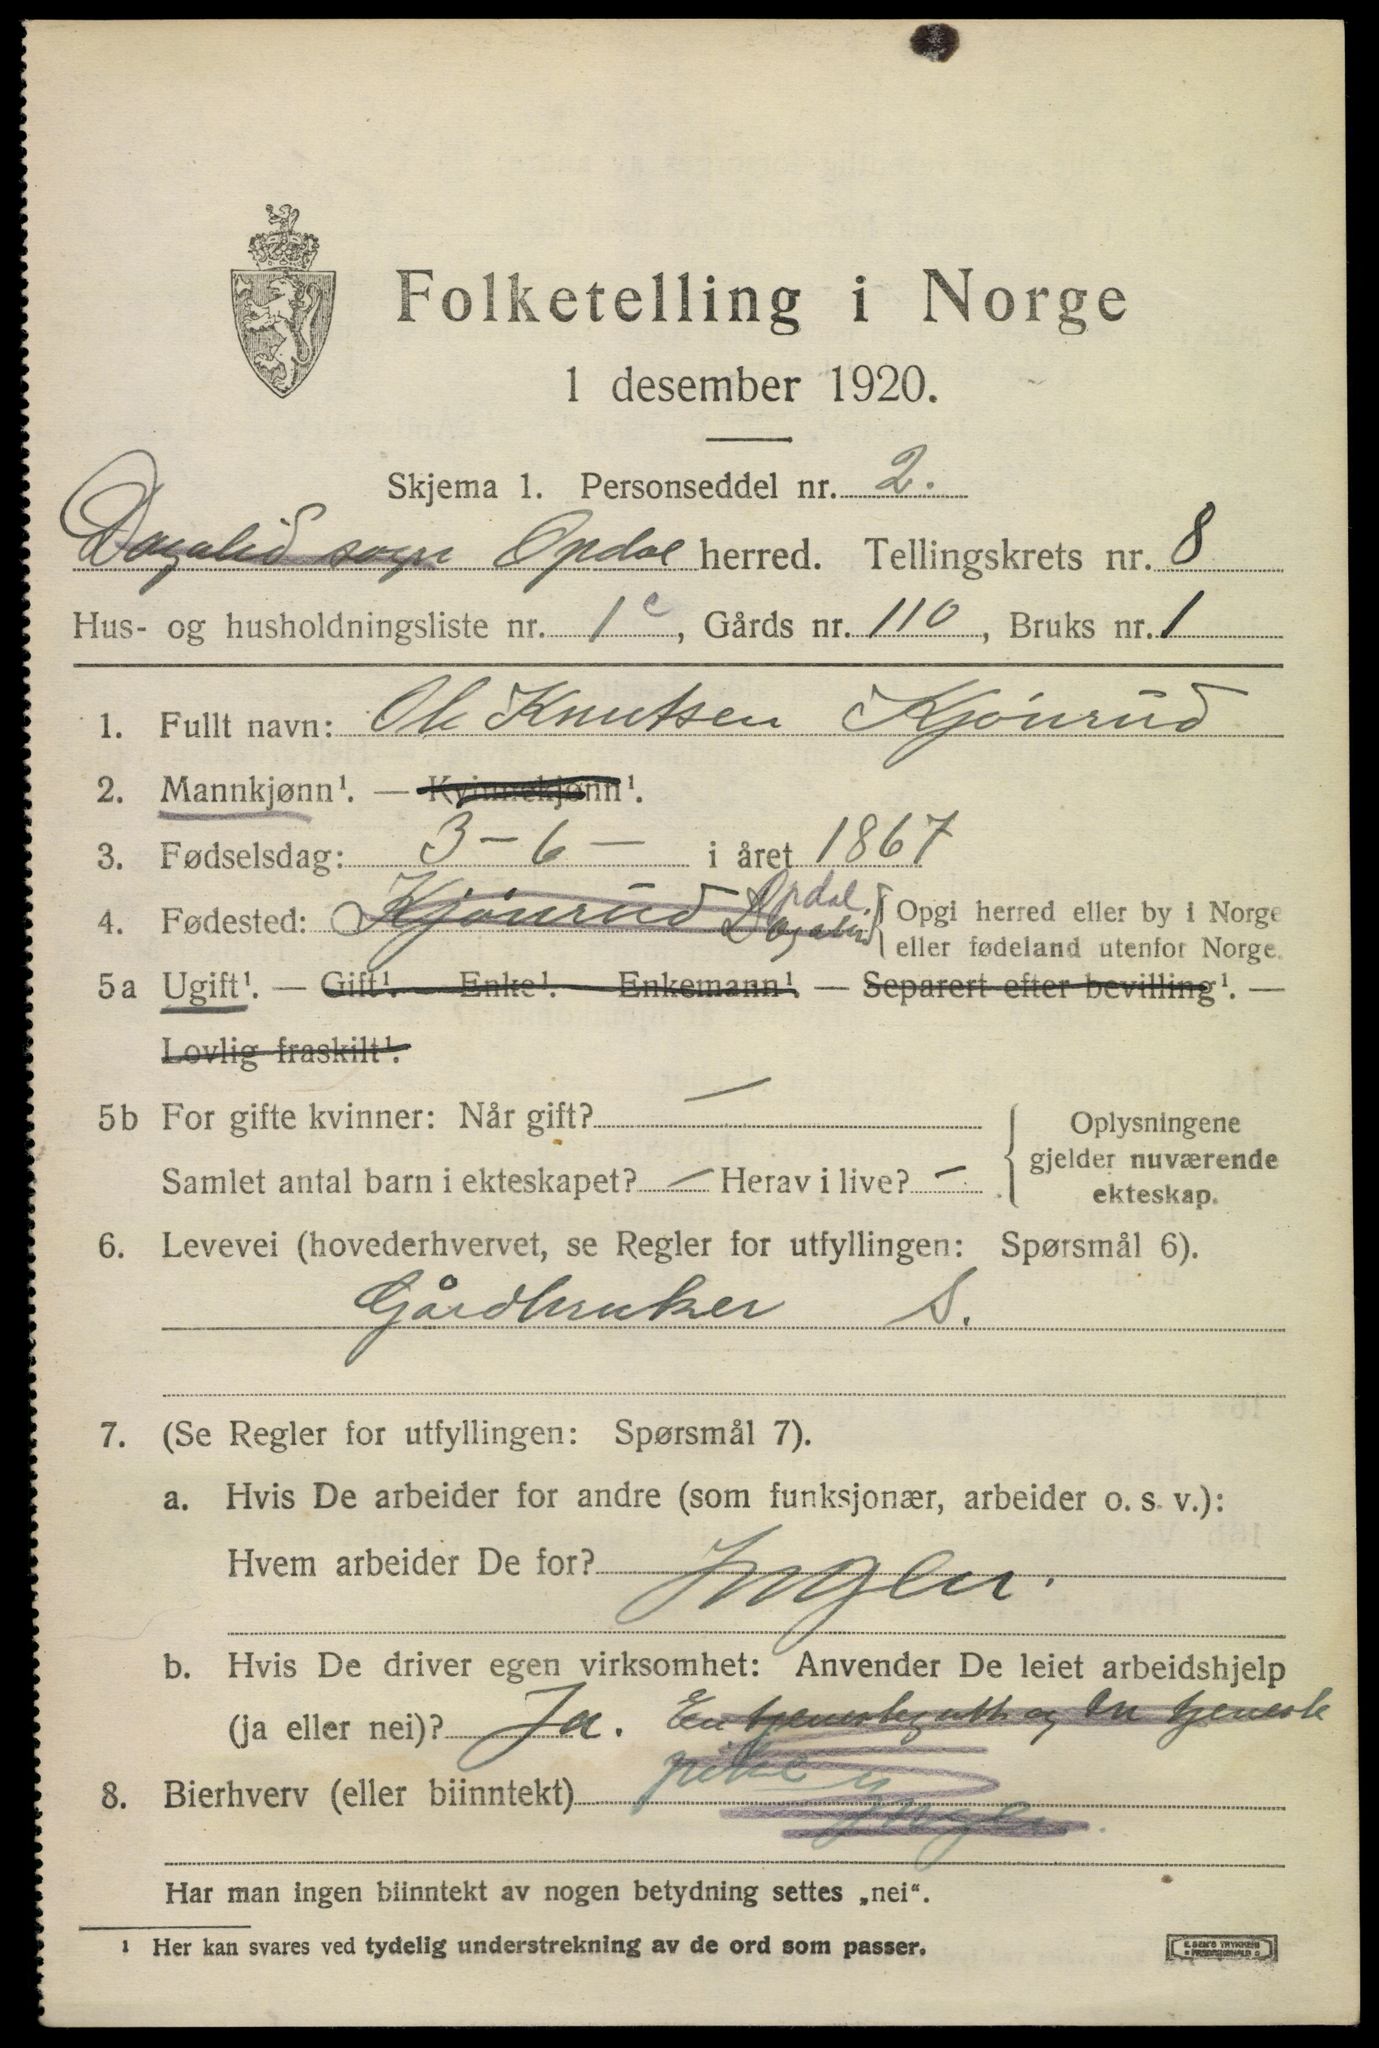 Folketelling i Norge
1 desember 1920.
Skjema 1. Personseddel nr. 2.
Dagalid sogn Opdal herred. Tellingskrets nr. 8
Hus- og husholdningsliste nr. 1c, Gårds nr. 110, Bruks nr. 1
1. Fullt navn: Ole Knutsen Kjönrud
2. Mannkjønn¹. — Kvinnekjønn¹.
3. Fødselsdag: 3 – 6 – i året 1867
4. Fødested: Kjönrud Dagalid Opdal { Opgi herred eller by i Norge
eller fødeland utenfor Norge.
5a Ugift¹. — Gift¹. — Enke¹. — Enkemann¹. — Separert efter bevilling¹. —
Lovlig fraskilt¹.
5b For gifte kvinner: Når gift? —
Samlet antal barn i ekteskapet? — Herav i live? —
Oplysningene
gjelder nuværende
ekteskap.
6. Levevei (hovederhvervet, se Regler for utfyllingen: Spørsmål 6).
Gårdbruker S.
7. (Se Regler for utfyllingen: Spørsmål 7).
a. Hvis De arbeider for andre (som funksjonær, arbeider o. s. v.):
Hvem arbeider De for? Ingen.
b. Hvis De driver egen virksomhet: Anvender De leiet arbeidshjelp
(ja eller nei)? Ja. En tjenestegutt og en tjeneste
pike
8. Bierhverv (eller biinntekt) Ingen.
Har man ingen biinntekt av nogen betydning settes „nei“.
¹ Her kan svares ved tydelig understrekning av de ord som passer.